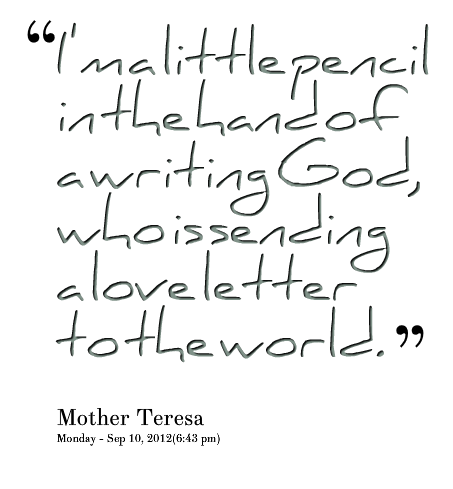 “I'm a little pencil
in the hand of
a writing God,
who is sending
a love letter
to the world.”
Mother Teresa
Monday - Sep 10, 2012(6:43 pm)